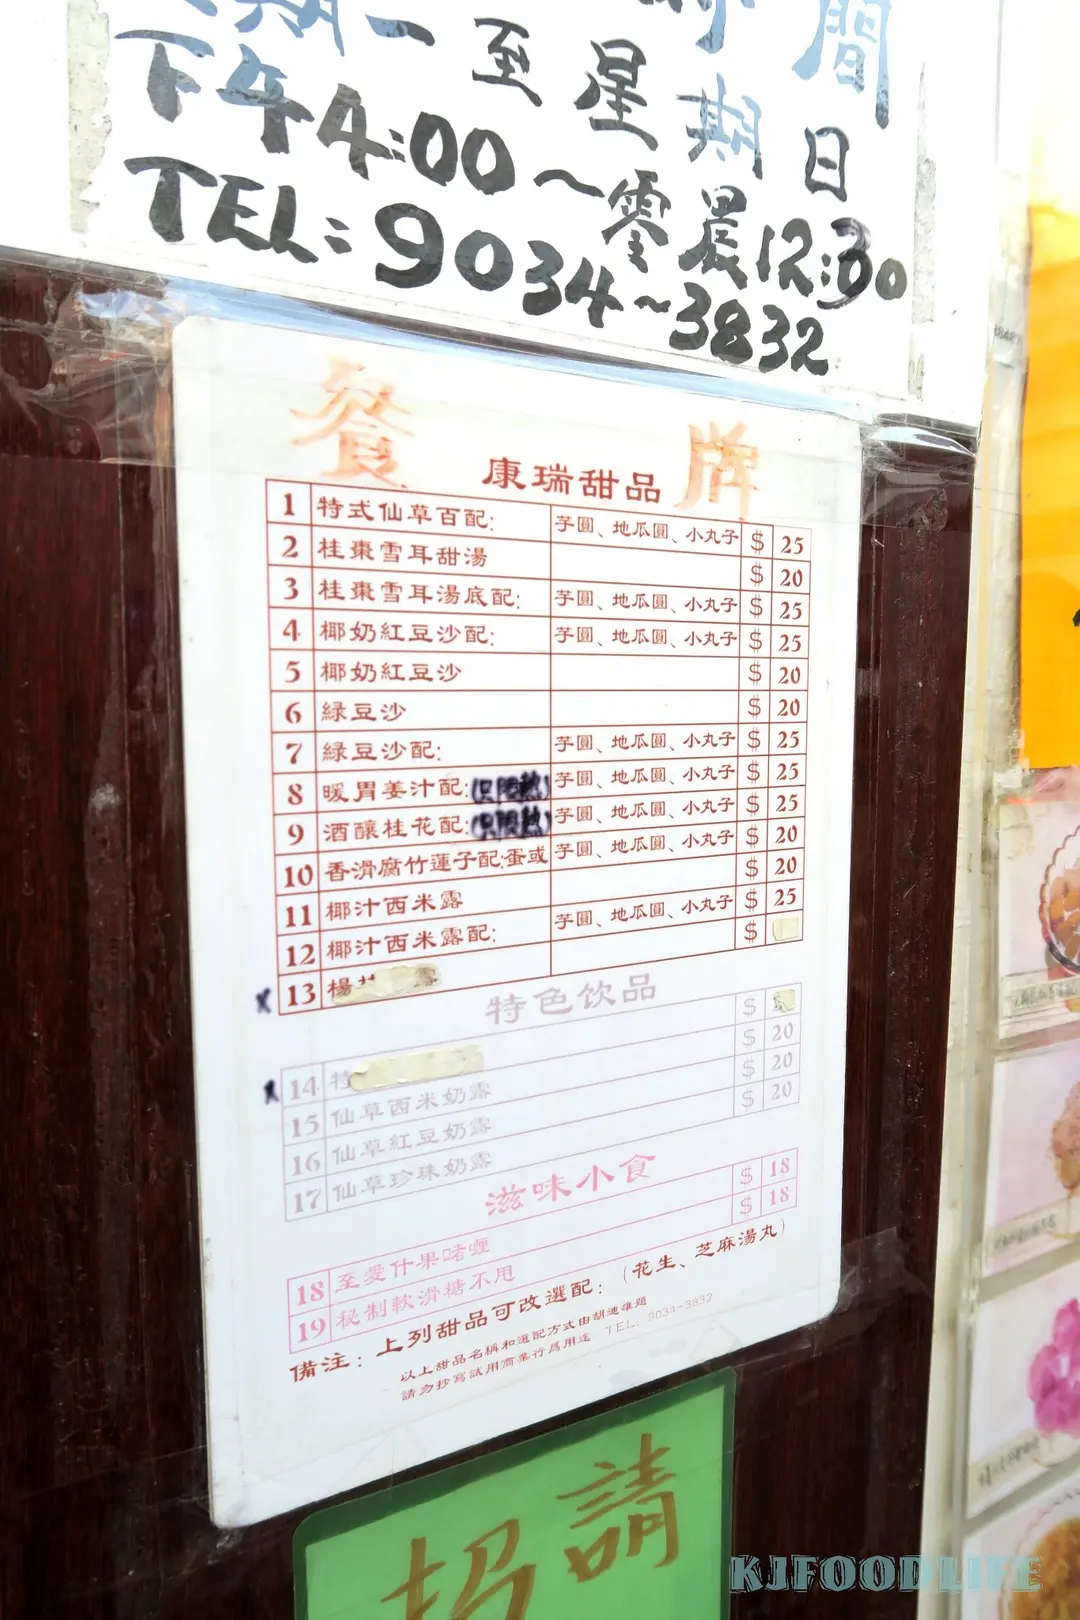 期一至星期日
間
下午4:00～零晨12:30
TEL:9034~3832
餐牌
康瑞甜品
1 特式仙草百配: 芋圓、地瓜圓、小丸子 $ 25
2 桂棗雪耳甜湯 $ 20
3 桂棗雪耳湯底配: 芋圓、地瓜圓、小丸子 $ 25
4 椰奶紅豆沙配: 芋圓、地瓜圓、小丸子 $ 25
5 椰奶紅豆沙 $ 20
6 綠豆沙 $ 20
7 綠豆沙配: 芋圓、地瓜圓、小丸子 $ 25
8 暖胃姜汁配:(只限熱) 芋圓、地瓜圓、小丸子 $ 25
9 酒釀桂花配:(只限熱) 芋圓、地瓜圓、小丸子 $ 25
10 香滑腐竹蓮子配:蛋或 芋圓、地瓜圓、小丸子 $ 20
11 椰汁西米露 $ 20
12 椰汁西米露配: 芋圓、地瓜圓、小丸子 $ 25
x 13 楊 露 $
特色饮品
x 14 特 $
15 仙草西米奶露 $ 20
16 仙草紅豆奶露 $ 20
17 仙草珍珠奶露 $ 20
滋味小食
18 至愛什果啫喱 $ 18
19 秘制軟滑糖不甩 $ 18
備注: 上列甜品可改選配:(花生、芝麻湯丸)
以上甜品名稱和選配方式由胡迪雄題
請勿抄寫試用商業行爲用途 TEL: 9034-3832
招請
KJFOODLIFE